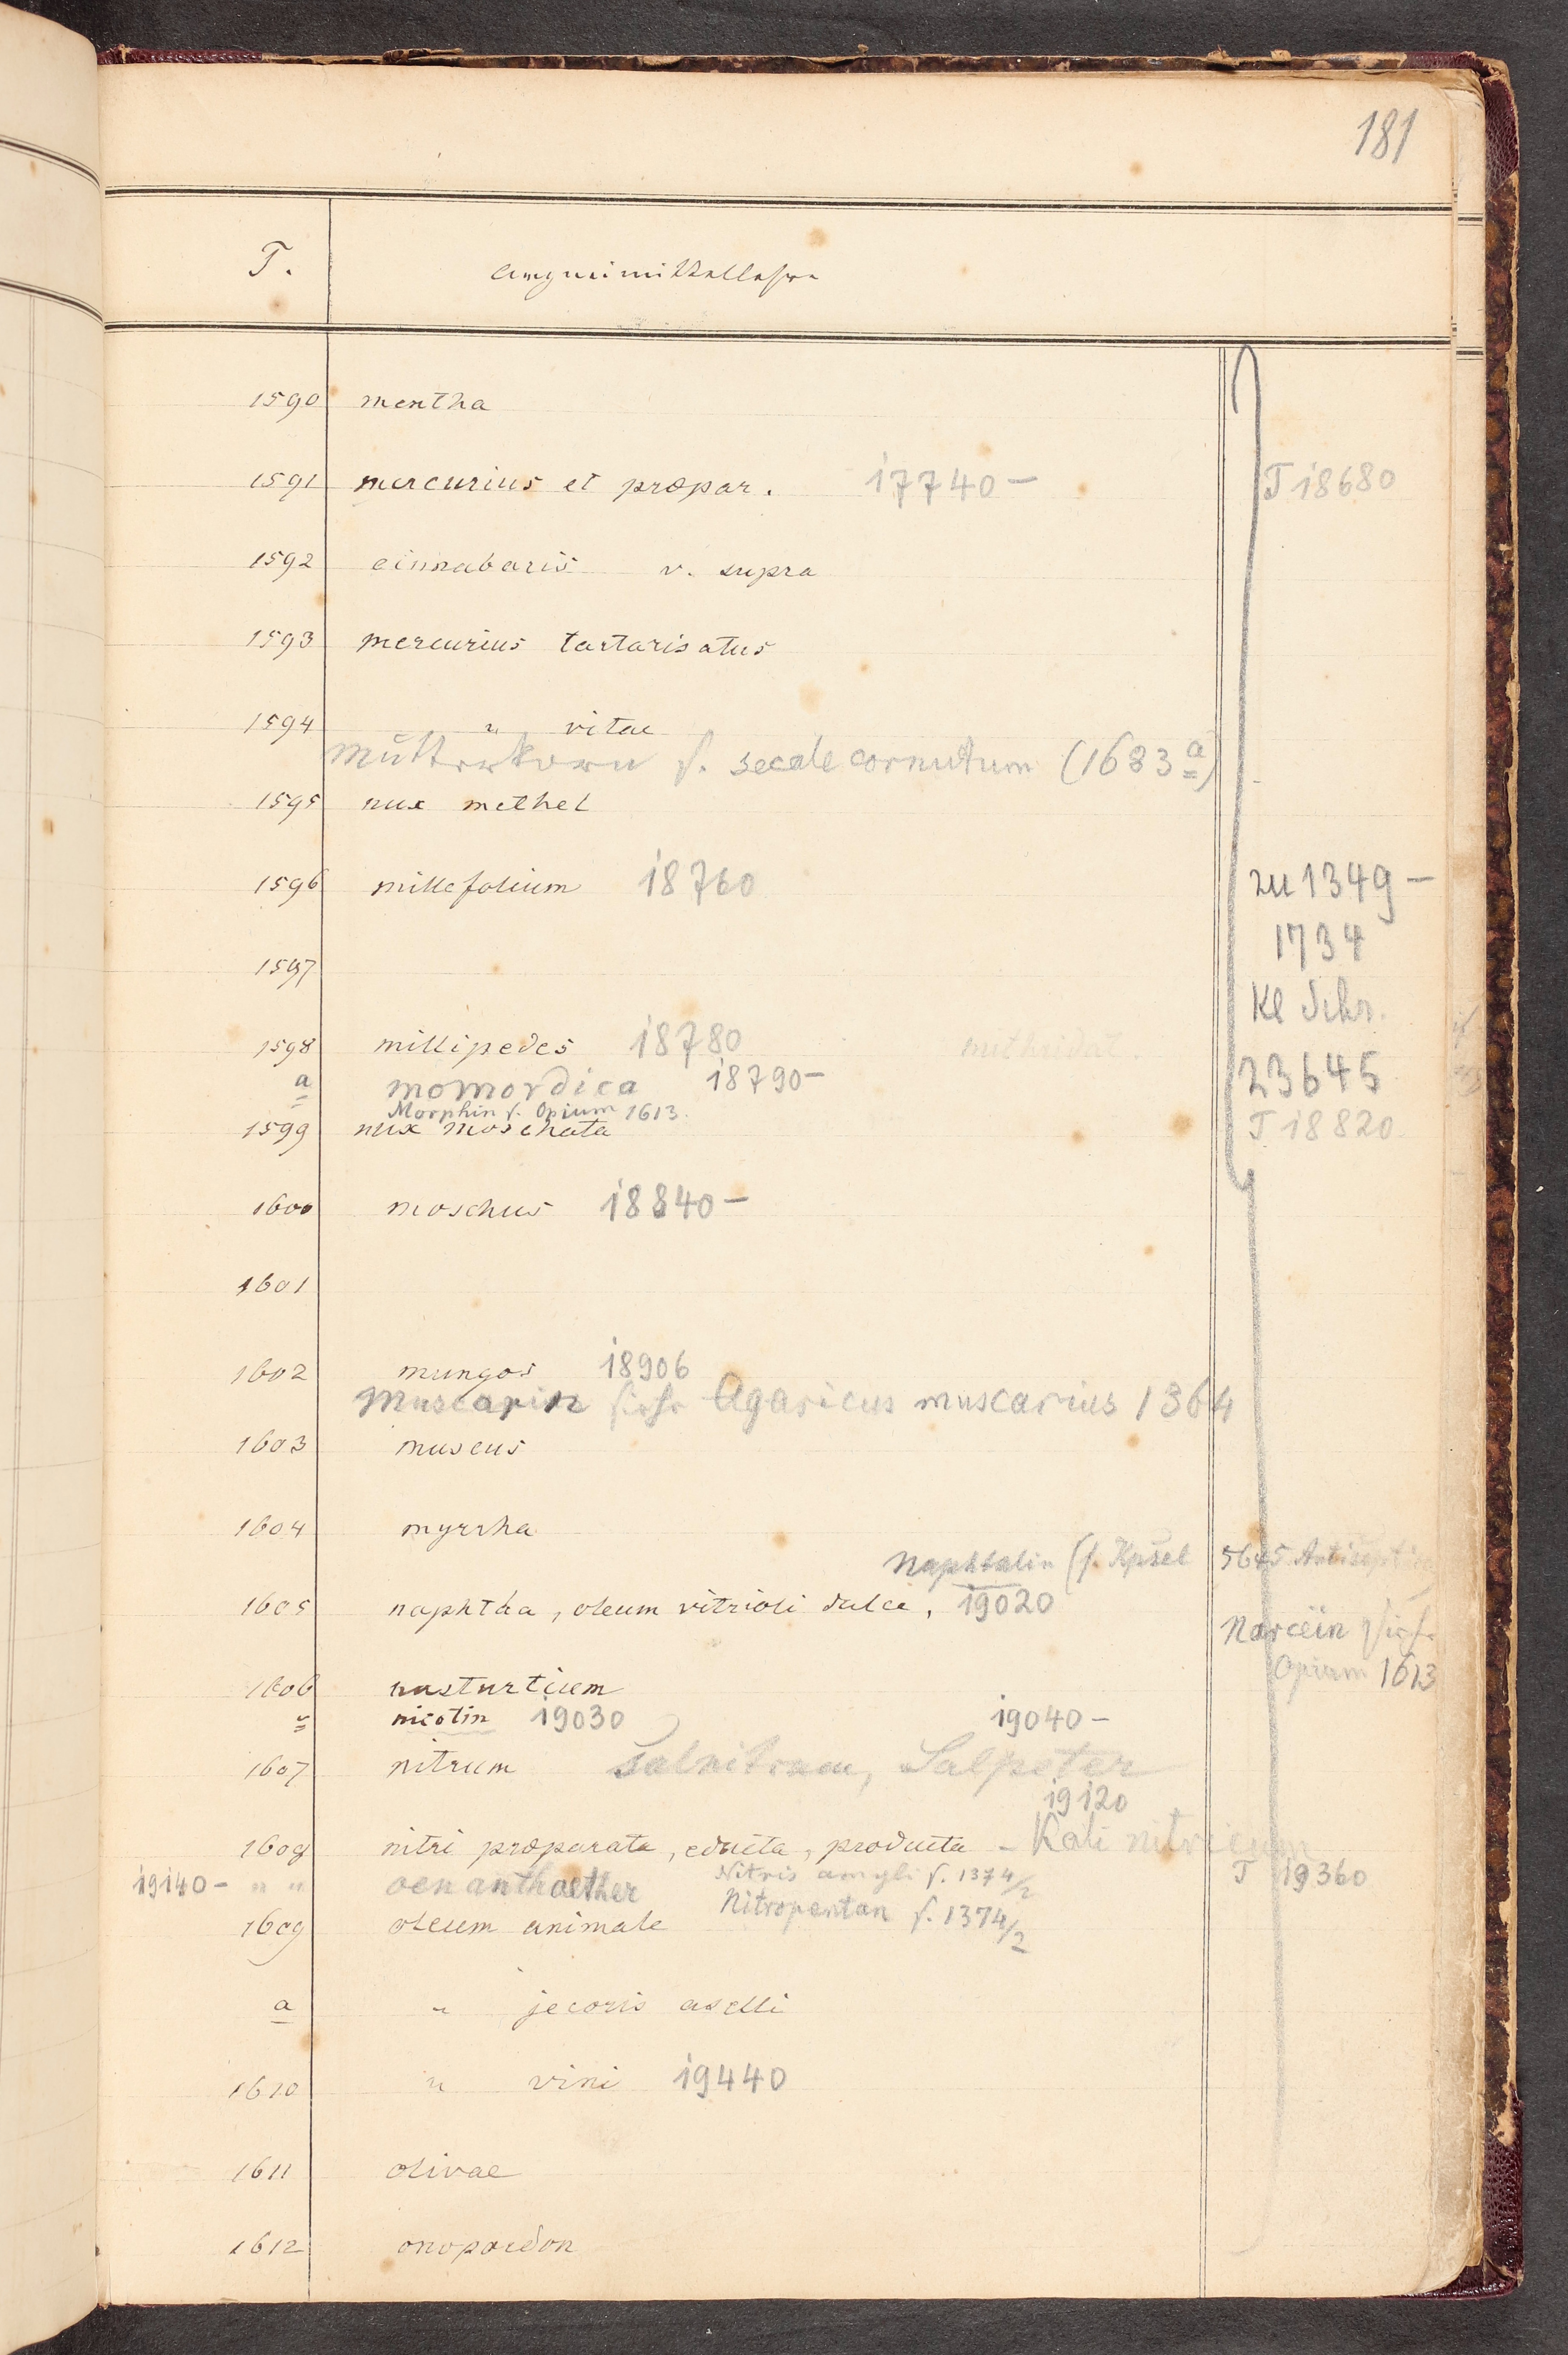 181
T. Arzneimittellehre
1590 mentha
1591 mercurius et præpar. 17740- T 18680
1592 cinnabaris v. supra
1593 mercurius tartarisatus
1594 " vitae
Mutterkorn s. secale cornutum (1683 a)
1595 nux methel
1596 millefolium 18760 zu 1349-
1734
1597
Kl Schr.
1598 millipedes 18780 mithridat. 23645
a momordica 18790-
Morphin s. Opium 1613.
1599 nux moschata T 18820
1600 moschus 18840-
1601
1602 mungos 18906
Muscarin siehe Agaricus muscarius 1364
1603 muscus
1604 myrrha
Naphtalin (s. Kpsel 5645 Antiseptica
1605 naphtha, oleum vitrioli dulce, 19020
Narceïn siehe
Opium 1613
1606 nasturtium
" nicotin 19030 19040-
1607 nitrum Salnitrum, Salpeter
19120
1608 nitri præparata, educta, producta - Kali nitricum
19140- " " oenanthaether Nitris amyli s. 1374/2 T 19360
Nitropentan s. 1374/2
1609 oleum animale
a " jecoris aselli
1610 " vini 19440
1611 olivae
1612 onopordon